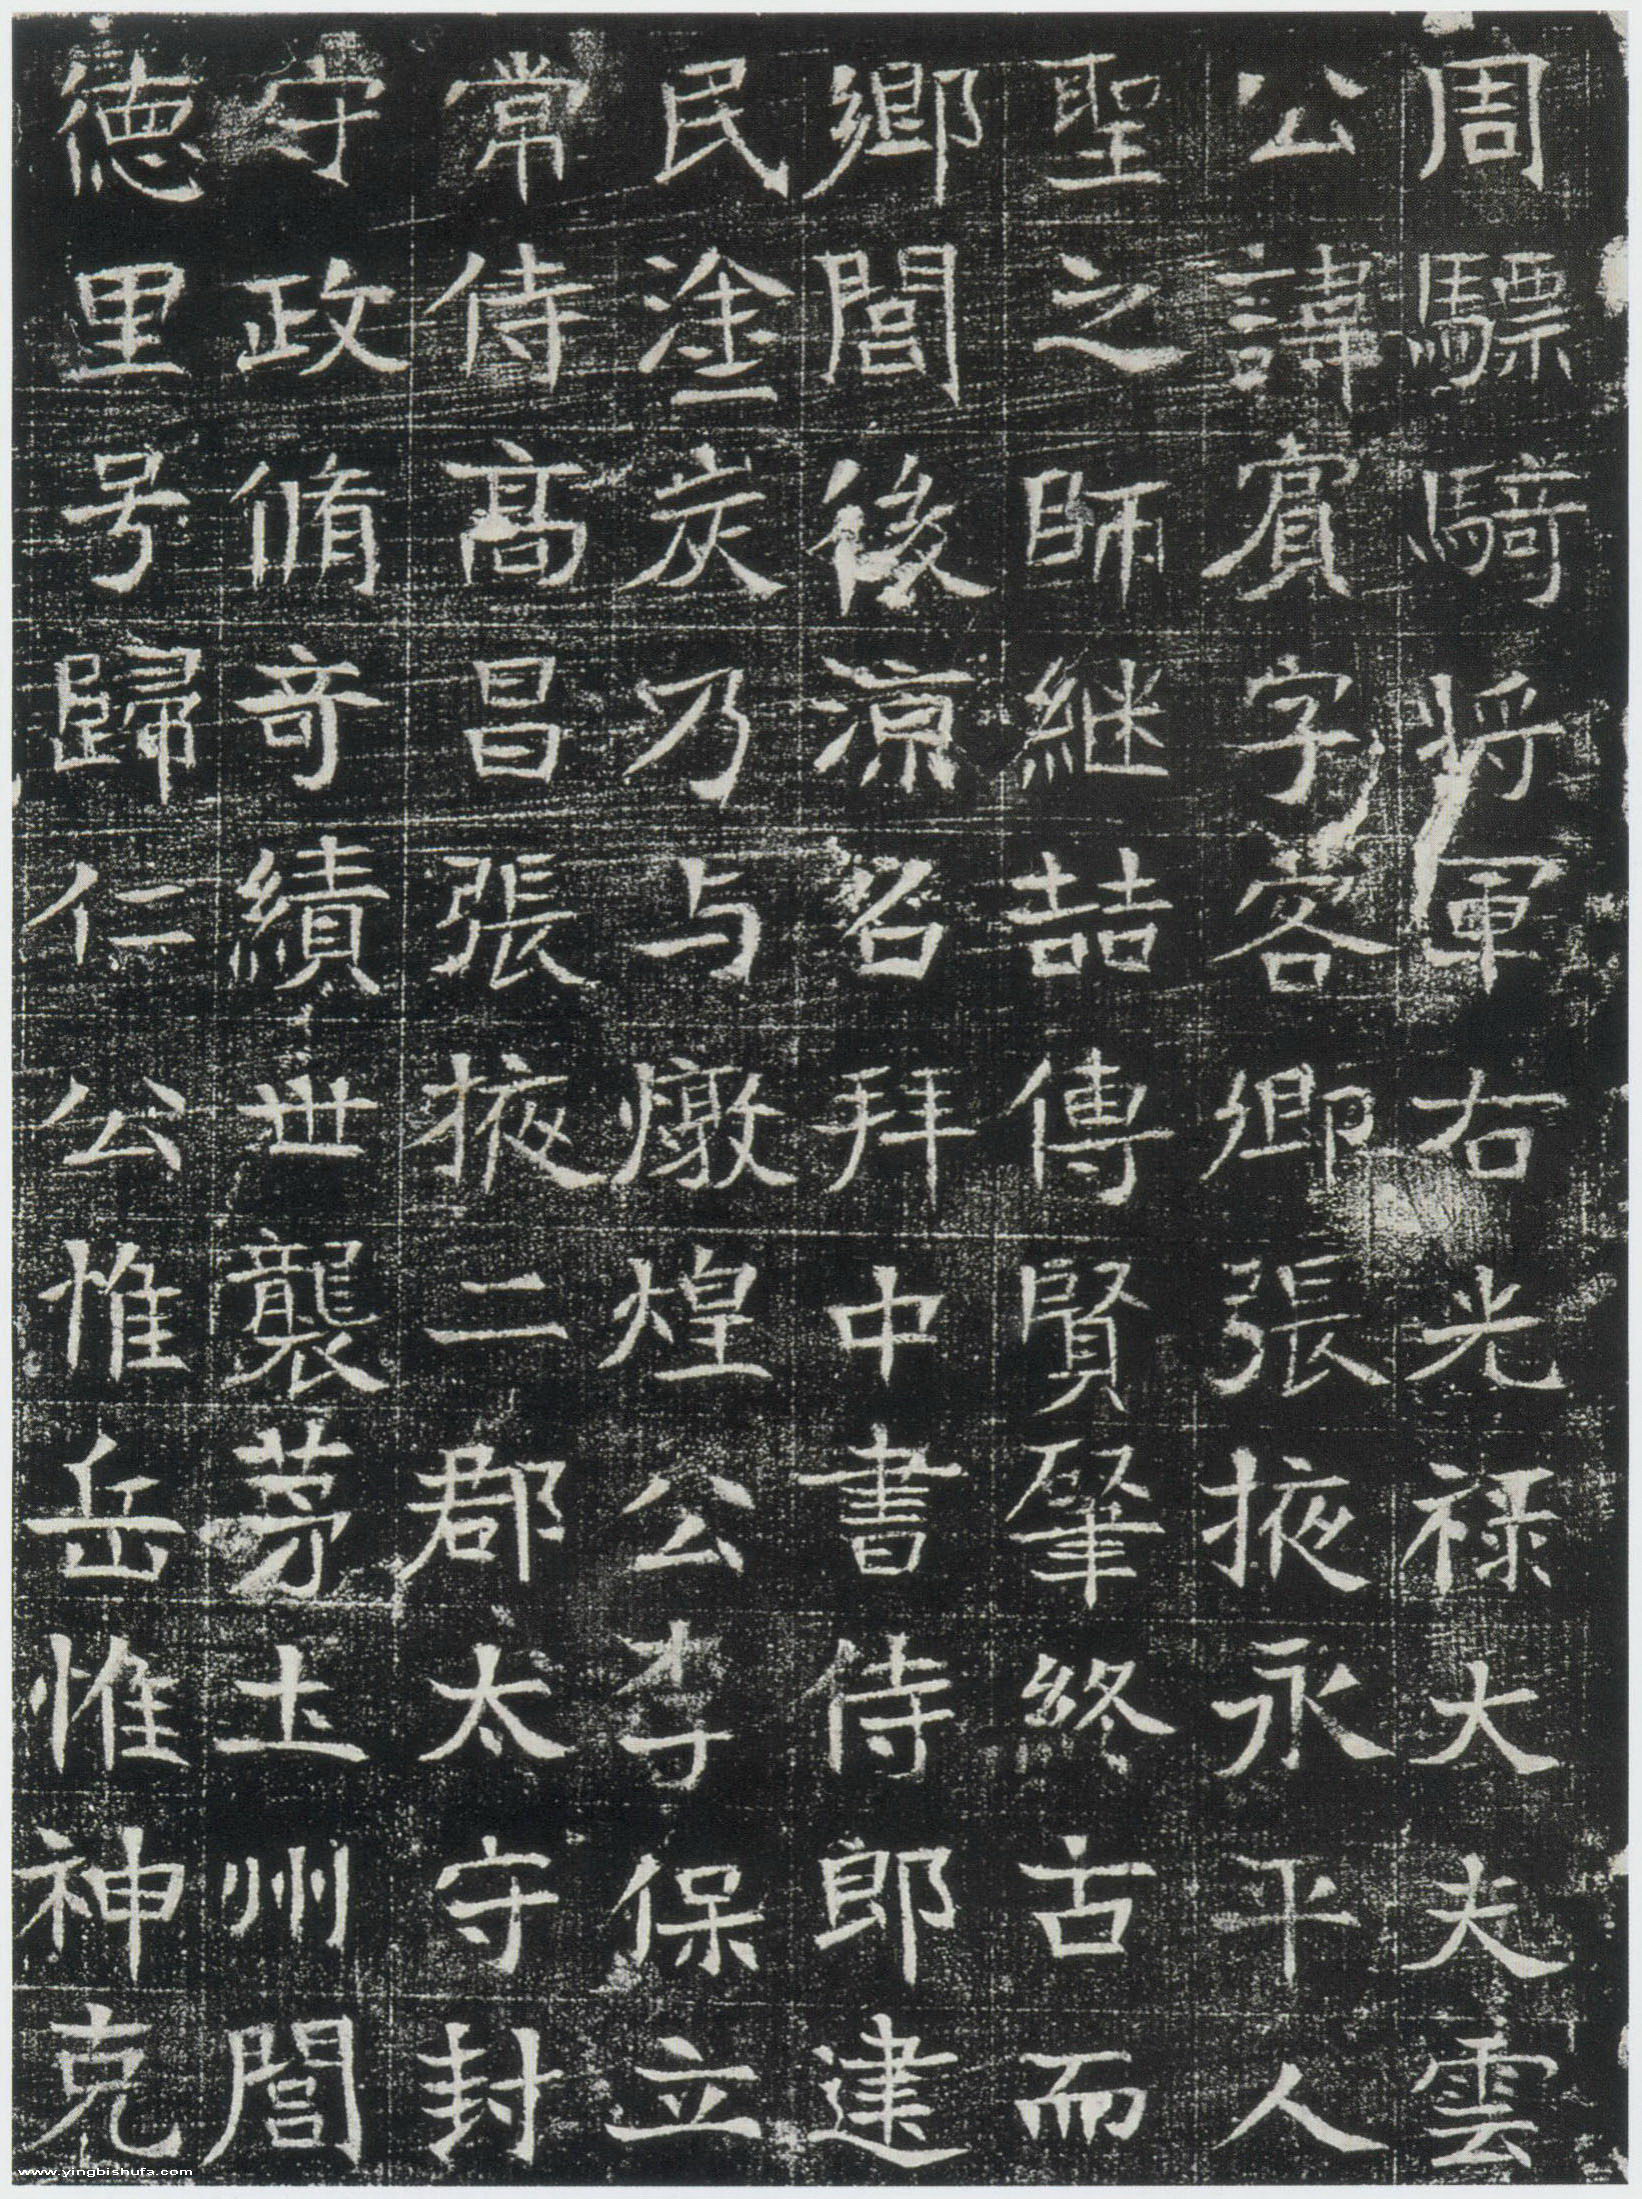 周驃騎將軍右光禄大夫雲
公諱賓字客卿張掖永平人
聖之師継喆傳賢肇終古而
郷閭後涼吕拜中書侍郎建
民塗炭乃与燉煌公李保立
常侍髙昌張掖二郡太守封
守政脩竒績世襲茅土州閭
徳里号歸仁公惟岳惟神克
www.yingbishufa.com